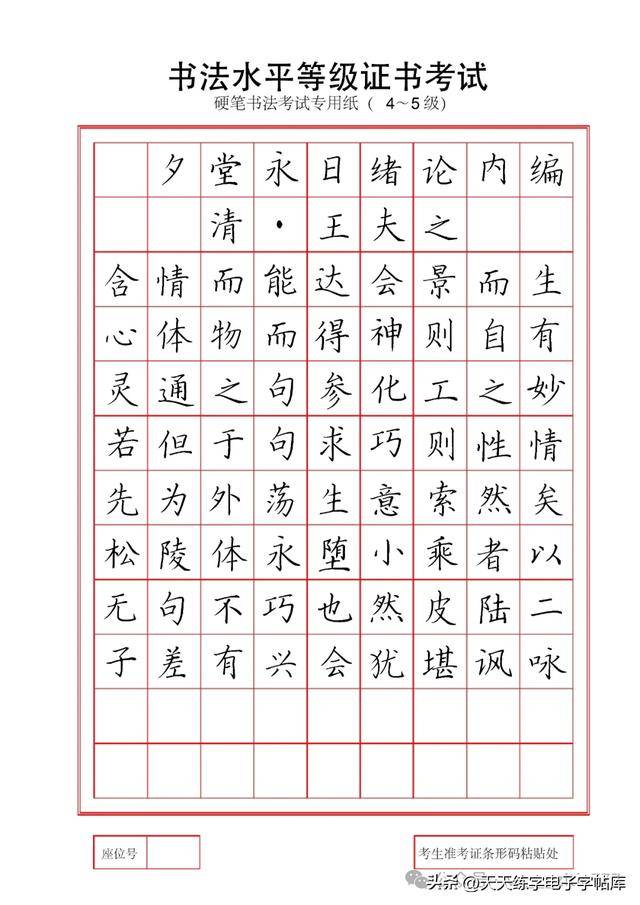 书法水平等级证书考试
硬笔书法考试专用纸（ 4～5级）
夕堂永日绪论内编
清·王夫之
含情而能达会景而生
心体物而得神则自有
灵通之句参化工之妙
若但于句求巧则性情
先为外荡生意索然矣
松陵体永堕小乘者以
无句不巧也然皮陆二
子差有兴会犹堪讽咏
座位号
考生准考证条形码粘贴处
头条@天天练字电子字帖库